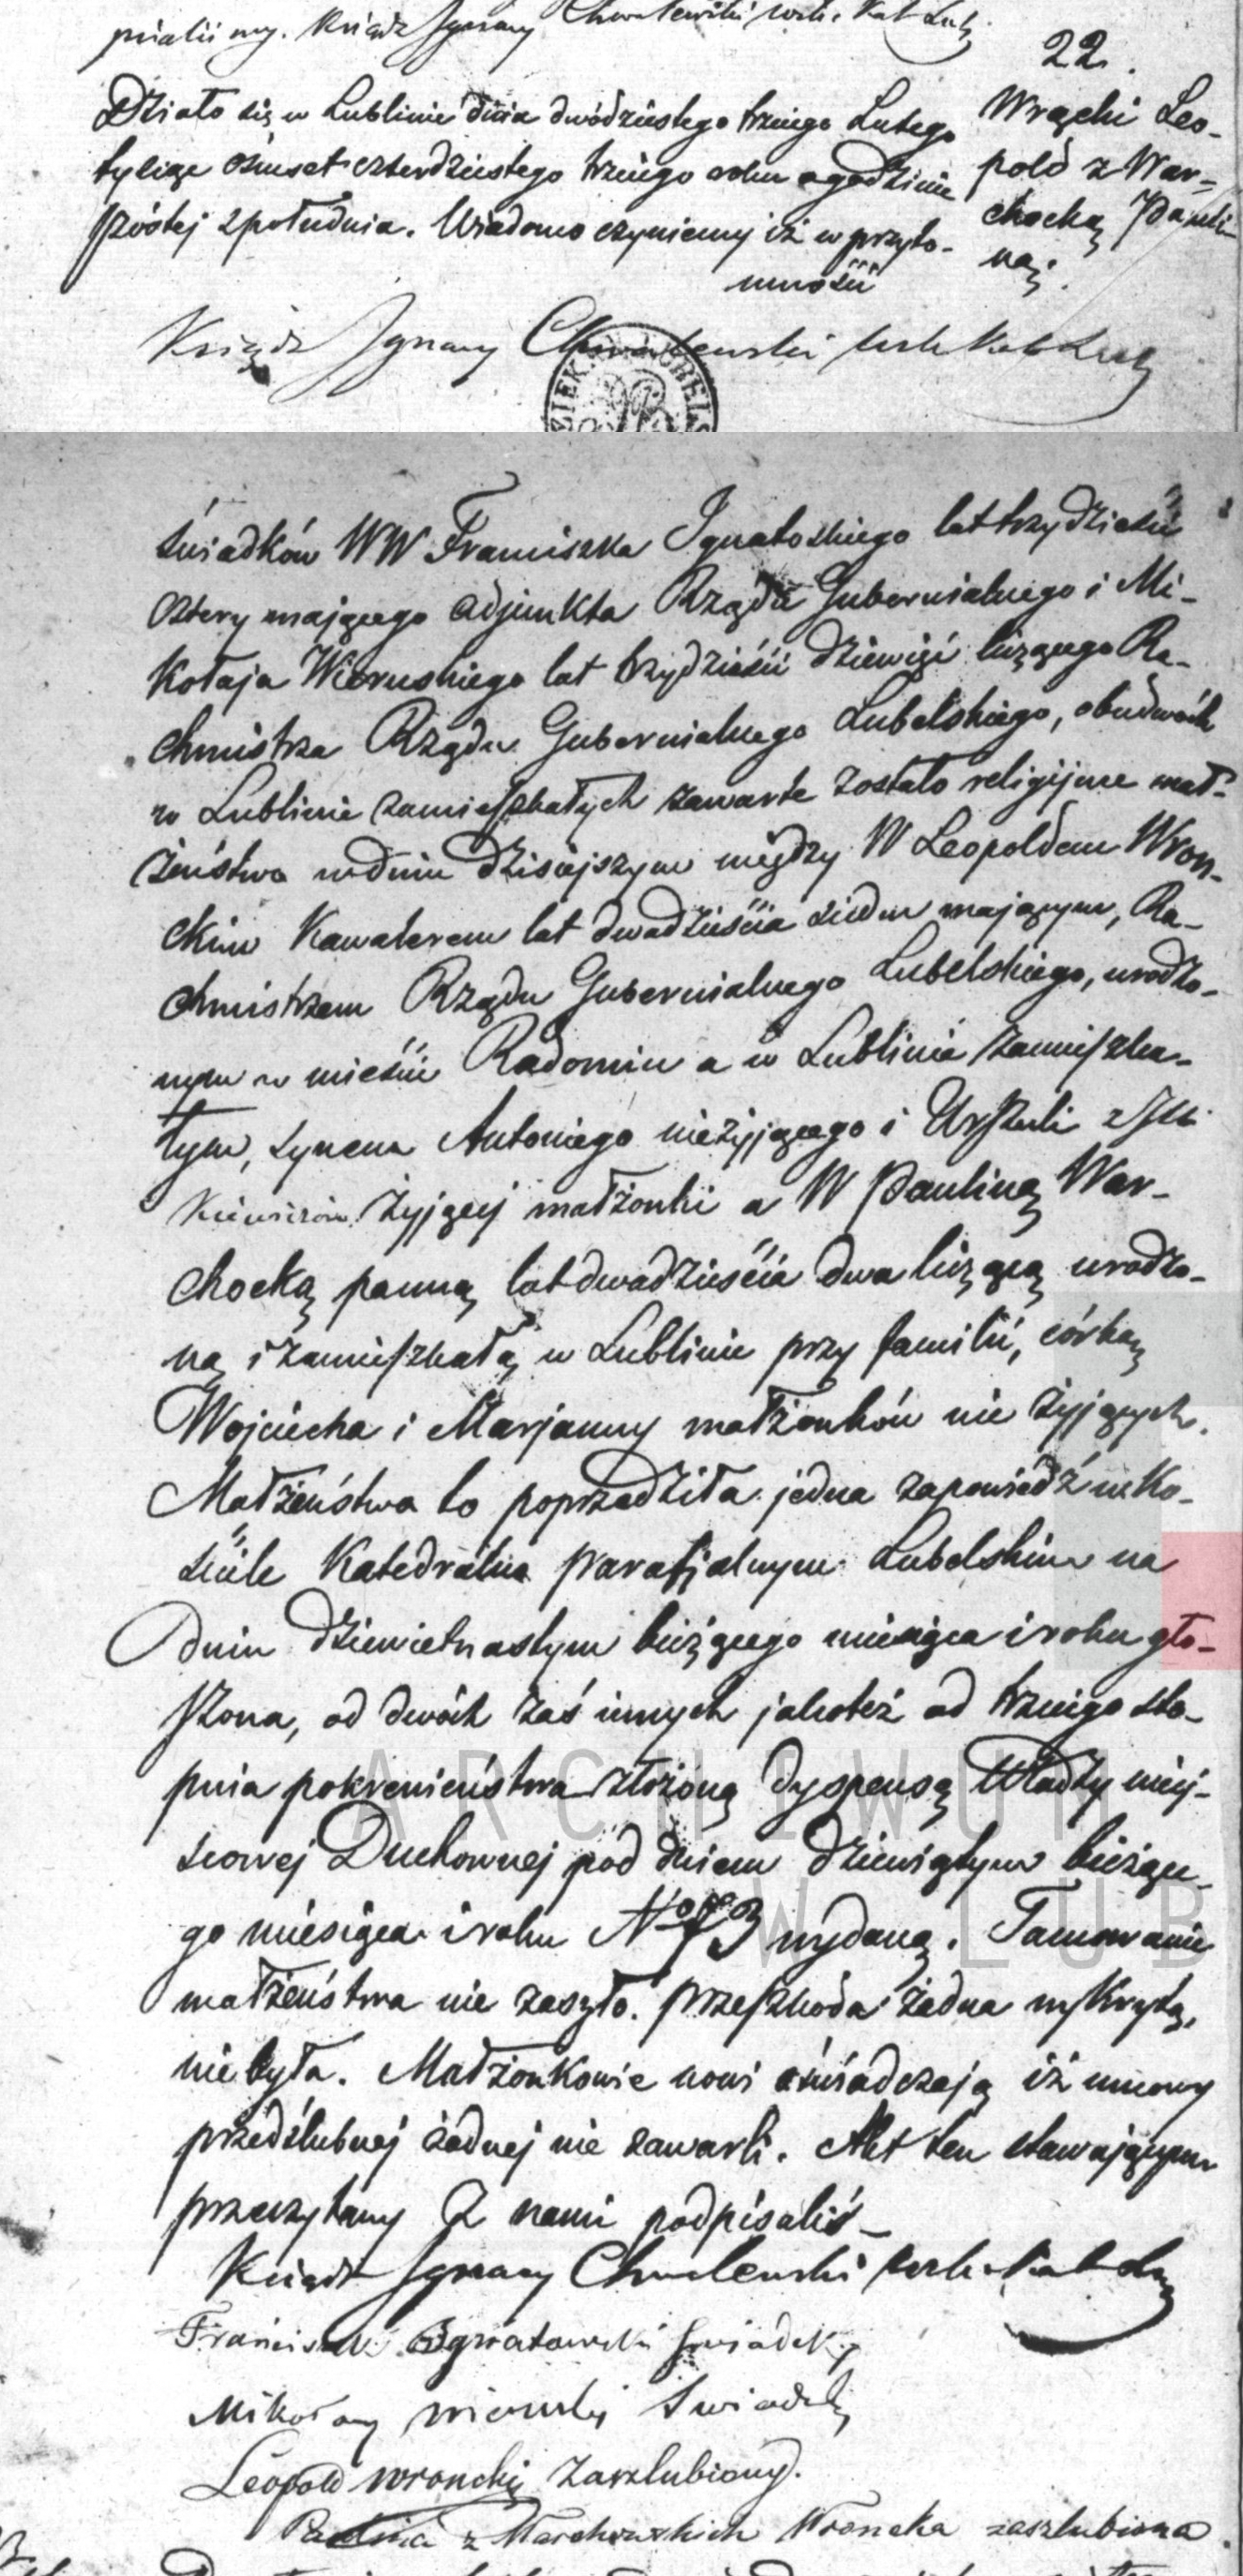 pisaliśmy. Ksiądz Ignacy Chmalewski wik. Kat Lub.
22.
Wrącki Leo-
pold z War-
chocką Pauli-
ną.
Działo się w Lublinie dnia dwódziestego trzeciego Lutego
tysiąc ośmset czterdziestego trzeciego roku o godzinie
szóstej z południa. Wiadomo czyniemy iż w przyto-
mności
Ksiądz Ignacy Chmalewski wik Kat Lub
świadków WW Franciszka Ignatoskiego lat trzydzieści
cztery mającego adjunkta Rządu Gubernialnego i Mi-
kołaja Wieruskiego lat trzydzieści dziewięć liczącego Ra-
chmistrza Rządu Gubernialnego Lubelskiego, obudwóch
w Lublinie zamieszkałych zawarte zostało religijne mał-
żeństwo w dniu dzisiejszym między W Leopoldem Wron-
ckim Kawalerem lat dwadzieścia siedm mającym, Ra-
chmistrzem Rządu Gubernialnego Lubelskiego, urodzo-
nym w mieście Radomiu a w Lublinie zamieszka-
łym, synem Antoniego nieżyjącego i Urszuli z
żyjącej małżonki a W Pauliną War-
chocką panną lat dwadzieścia dwa liczącą urodzo-
ną i zamieszkałą w Lublinie przy familii, córką
Wojciecha i Marjanny małżonków nie żyjących.
Małżeństwo to poprzedziła jedna zapowiedź w Ko-
ściele Katedralno parafjalnym Lubelskim na
Dniu dziewietnastym bieżącego miesiąca i roku gło-
szona, od dwóch zaś innych jakoteż od trzeciego sto-
pnia pokrewieństwa złożoną dyspensą Władzy miej-
scowej Duchownej pod dniem dziewiątym bieżące-
go miesiąca i roku No 73 wydaną. Tamowanie
małżeństwa nie zaszło. przeszkoda żadna wykrytą,
niebyła. Małżonkowie nowi oświadczają iż umowy
przedślubnej żadnej nie zawarli. Akt ten stawającym
przeczytany Z nami podpisaliś-
Ksiądz Ignacy Chmalewski wik. Kat Lub
Franciszek Ignatowski świadek
Mikołay wieruski Swiadek
Leopold wroncki Zaszlubiony.
Paulina z Warchockich Wroncka zaszlubiona.
ARCHIWUM
W LUB